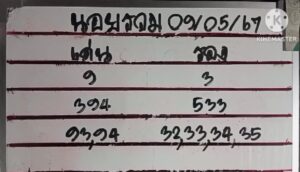 นอยรวม 09/05/67
เด่น รอง
9 3
394 533
93,94 32,33,34,35
KINEMASTER